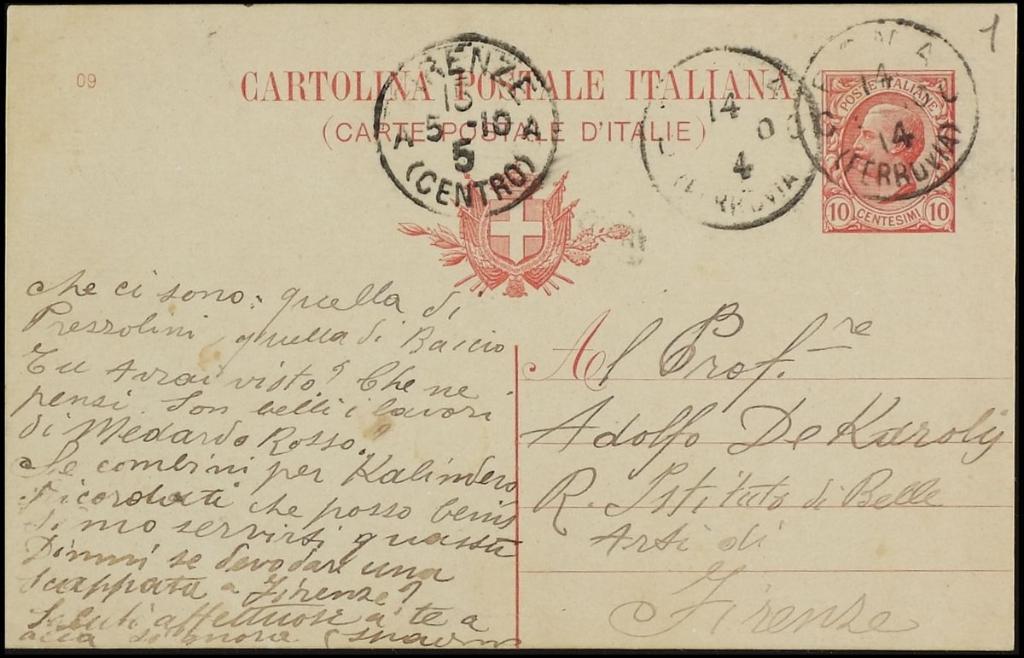 1
09
CARTOLINA POSTALE ITALIANA
(CARTE POSTALE D'ITALIE)
FIRENZE
15
A 5 -10 A
5
(CENTRO)
14
4
(FERROVIA
14
14
(FERROVIA)
POSTE ITALIANE
10 CENTESIMI 10
che ci sono: quella di
Prezzolini, quella di Baccio
Tu avrai visto? Che ne
pensi. Son belli i lavori
di Medardo Rosso?
Se combini per Kalindero
ricordati che posso benis
simo servirti quassù
Dimmi se devo dare una
scappata a Firenze?
Saluti affettuosi a te a
Signora
Al Prof.re
Adolfo De Karoly
R. Istituto di Belle
Arti di
Firenze